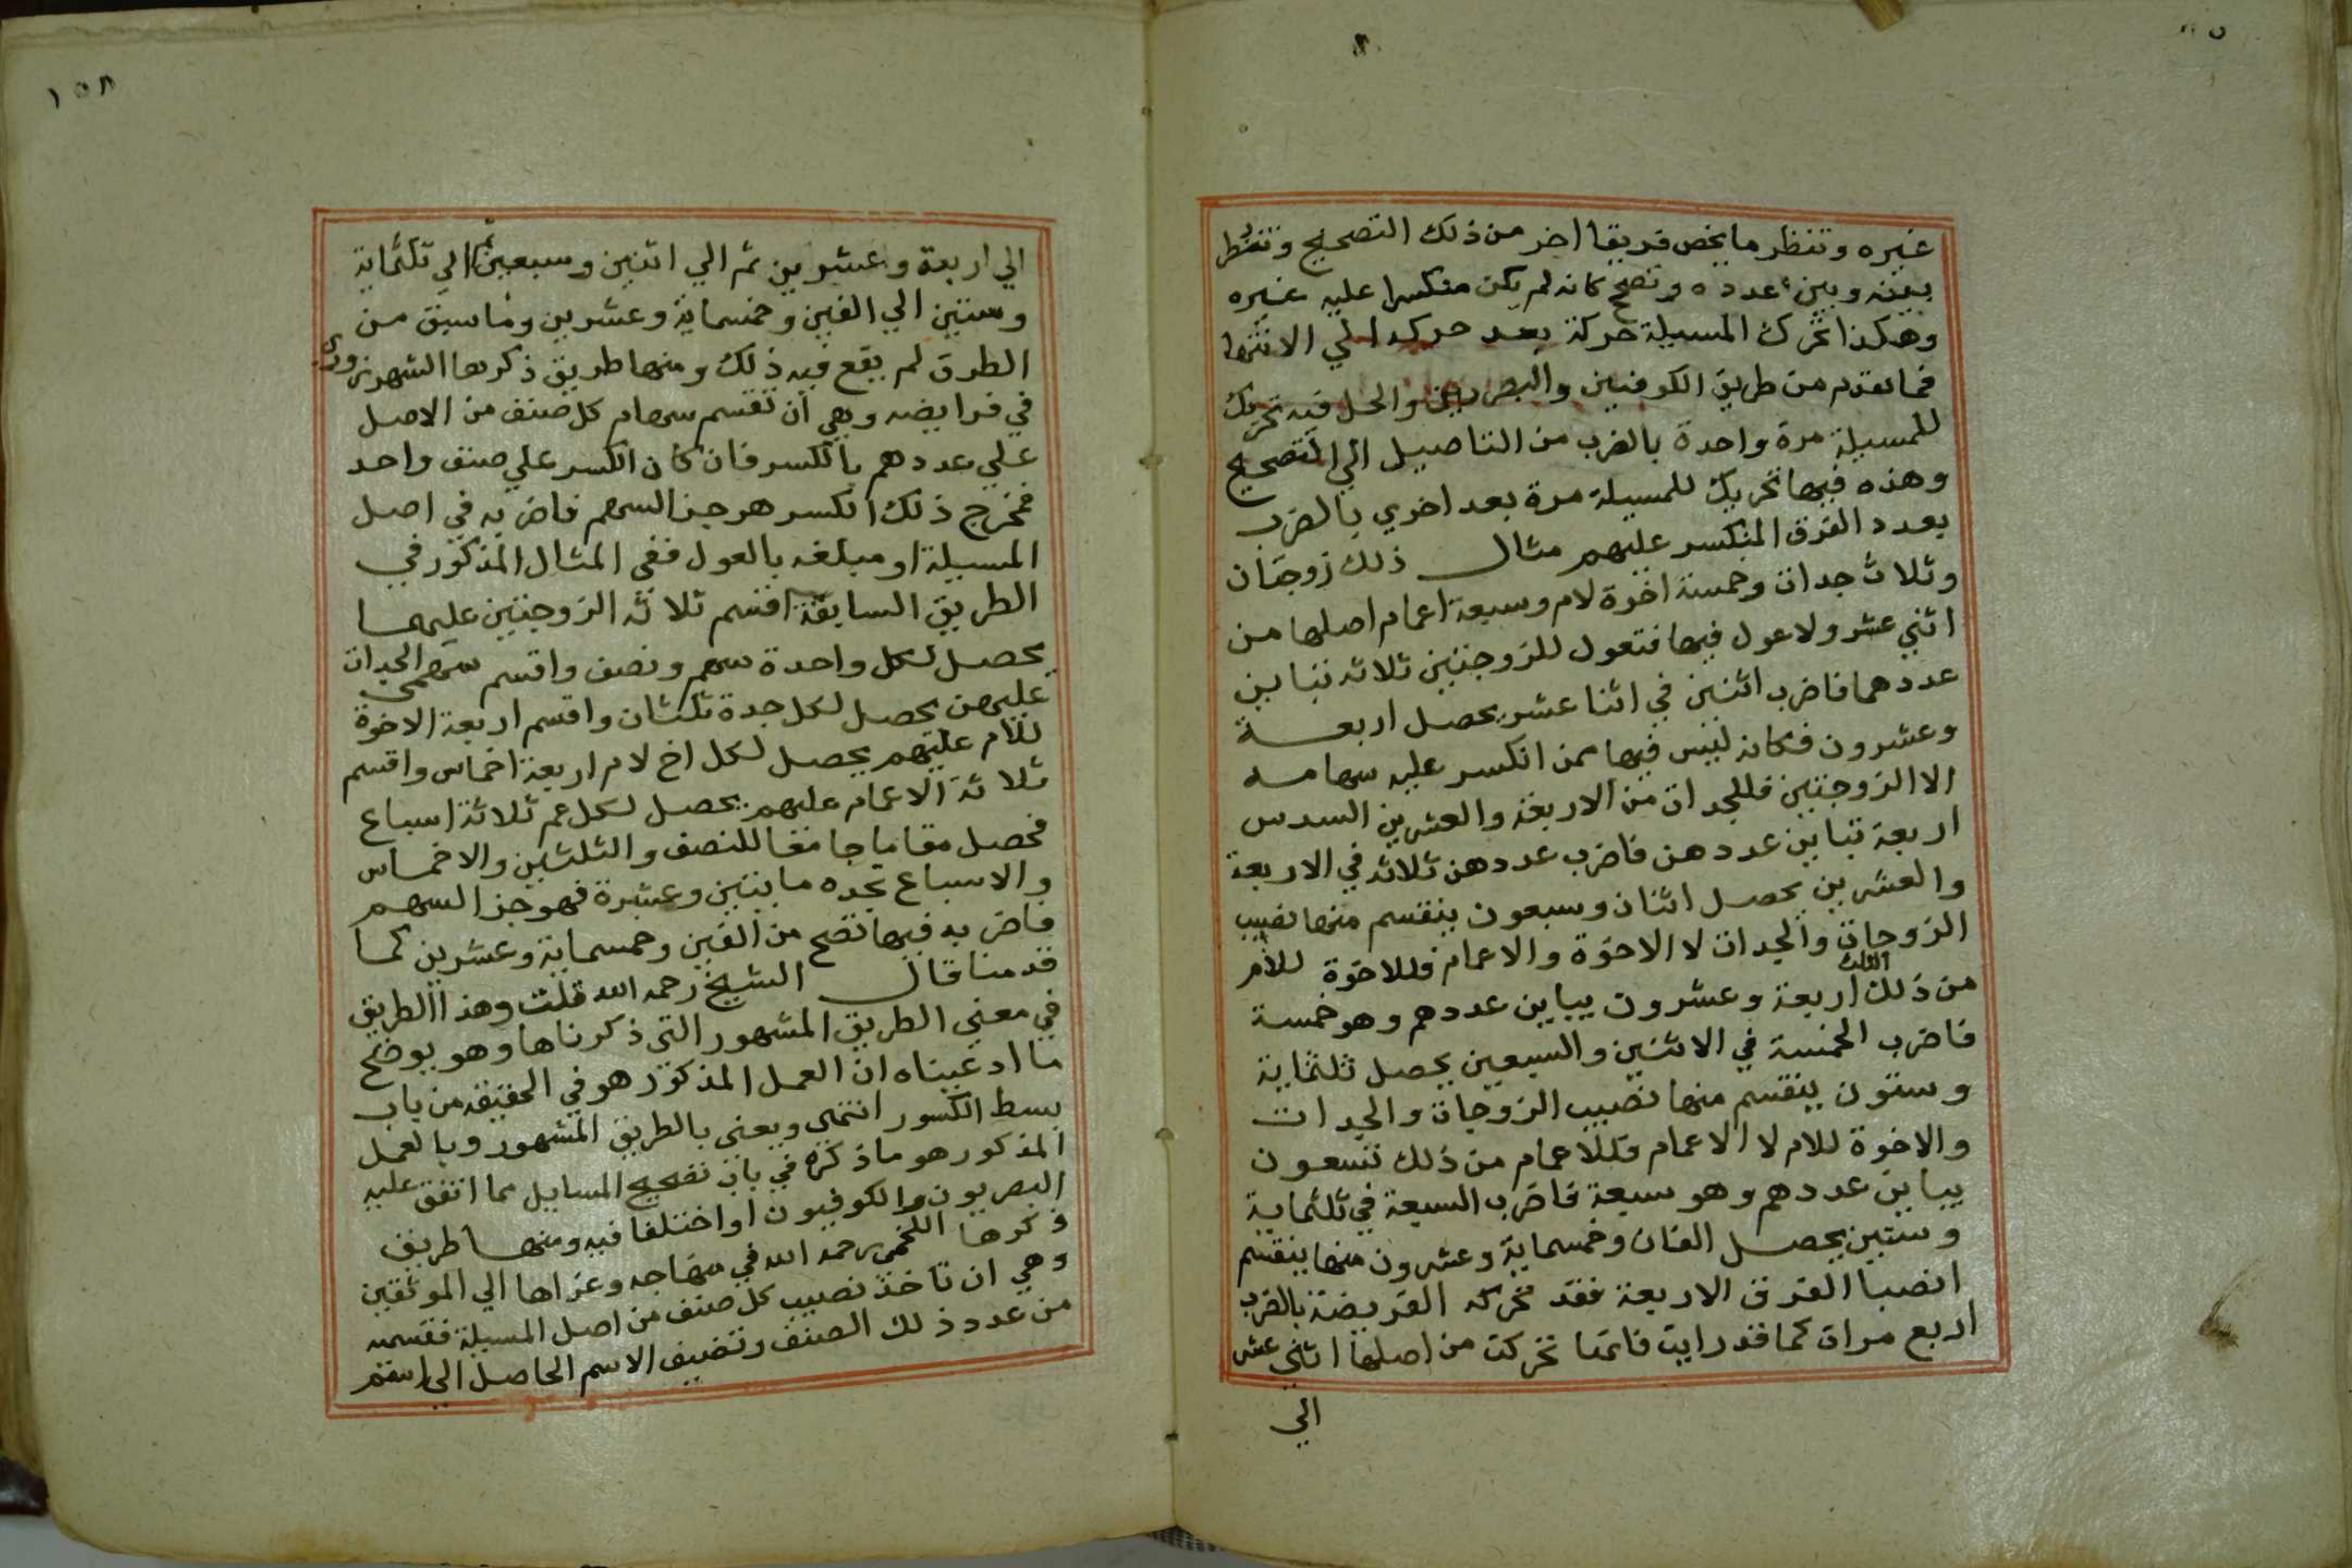 غيره وتنظر ما يخص فريقا اخر من ذلك التصحيح وتنظر
بينه وبين عدده وتصح كانه لم يكن منكسرا عليه غيره
وهكذا تحرك المسيلة حركة بعد حركة الي الانتها
فما تقدم من طريق الكوفيين والبصريين والحل فيه تحريك
للمسيلة مرة واحدة بالضرب من التاصيل الي التصحيح
وهذه فيها تحريك للمسيلة مرة بعد اخري بالضرب
بعدد الفرق المنكسر عليهم مثال ذلك زوجتان
وثلاث جدات وخمسة اخوة لام وسبعة اعمام اصلها من
اثني عشر ولا عول فيها فتعول للزوجتين ثلاثه تباين
عددهما فاضرب اثنين في اثنا عشر يحصل اربعة
وعشرون فكانه ليس فيها ممن انكسر عليه سهامه
الا الزوجتين فللجدات من الاربعة والعشرين السدس
اربعة تباين عددهن فاضرب عددهن ثلاثه في الاربعة
والعشرين يحصل اثنان وسبعون ينقسم منها نصيب
الزوجات والجدات لا الاخوة والاعمام فللاخوة للام
الثلث
من ذلك اربعة وعشرون يباين عددهم وهو خمسة
فاضرب الخمسة في الاثنين والسبعين يحصل ثلثماية
وستون ينقسم منها نصيب الزوجات والجدات
والاخوة للام لا الاعمام فللاعمام من ذلك تسعون
يباين عددهم وهو سبعة فاضرب السبعة في ثلثماية
وستين يحصل الفان وخمسماية وعشرون منها ينقسم
انصبا الفرق الاربعة فقد تحركه الفريضة بالضرب
اربع مرات كما قد رايت فانها تحركت من اصلها اثني عشر
الي
١٥٨
الي اربعة وعشرين ثم الي اثنين وسبعين ثم الي ثلثماية
وستين الي الفين وخمسماية وعشرين وما سبق من
الطرق لم يقع فيه ذلك ومنها طريق ذكرها السهروردي
في فرايضه وهي ان تقسم سهام كل صنف من الاصل
علي عددهم بالكسر فان كان الكسر علي صنف واحد
فمخرج ذلك الكسر هو جز السهم فاضربه في اصل
المسيلة او مبلغه بالعول ففي المثال المذكور في
الطريق السابقة اقسم ثلاثه الزوجتين عليهما
يحصل لكل واحدة سهم ونصف واقسم سهمي الجدات
عليهن يحصل لكل جدة ثلثان واقسم اربعة الاخوة
للام عليهم يحصل لكل اخ لام اربعة اخماس واقسم
ثلاثة الاعمام عليهم يحصل لكل عم ثلاثة اسباع
فحصل مقاما جامعا للنصف والثلثين والاخماس
والاسباع تجده مايتين وعشرة فهو جز السهم
فاضربه فيها تصح من الفين وخمسماية وعشرين كما
قدمنا قال الشيخ رحمه الله قلت وهذا الطريق
في معني الطريق المشهور التي ذكرناها وهو يوضح
ما ادعيناه ان العمل المذكور هو في الحقيقة من باب
بسط الكسور انتهي ويعني بالطريق المشهور وبالعمل
المذكور هو ما ذكره في باب تصحيح المسايل مما اتفق عليه
البصريون والكوفيون او اختلفا فيه ومنها طريق
ذكرها اللخمي رحمه الله في منهاجه وعزاها الي الموثقين
وهي ان تاخذ نصيب كل صنف من اصل المسيلة فقسمه
من عدد ذلك الصنف وتضيف الاسم الحاصل الي اسم